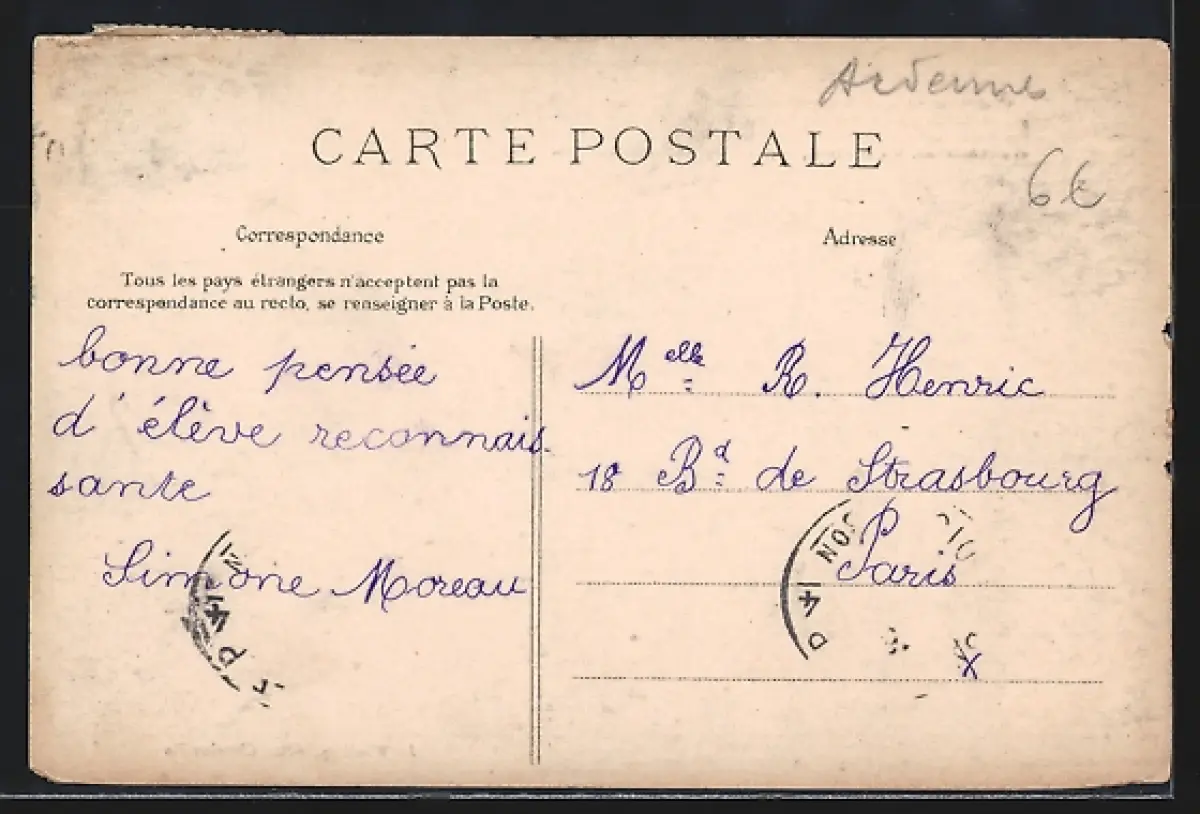 Ardennes
CARTE POSTALE
6€
Correspondance
Adresse
Tous les pays étrangers n'acceptent pas la
correspondance au recto, se renseigner à la Poste.
bonne pensée
d'élève reconnais-
sante
Simone Moreau
Melle R. Henric
18 Bd de Strasbourg
Paris